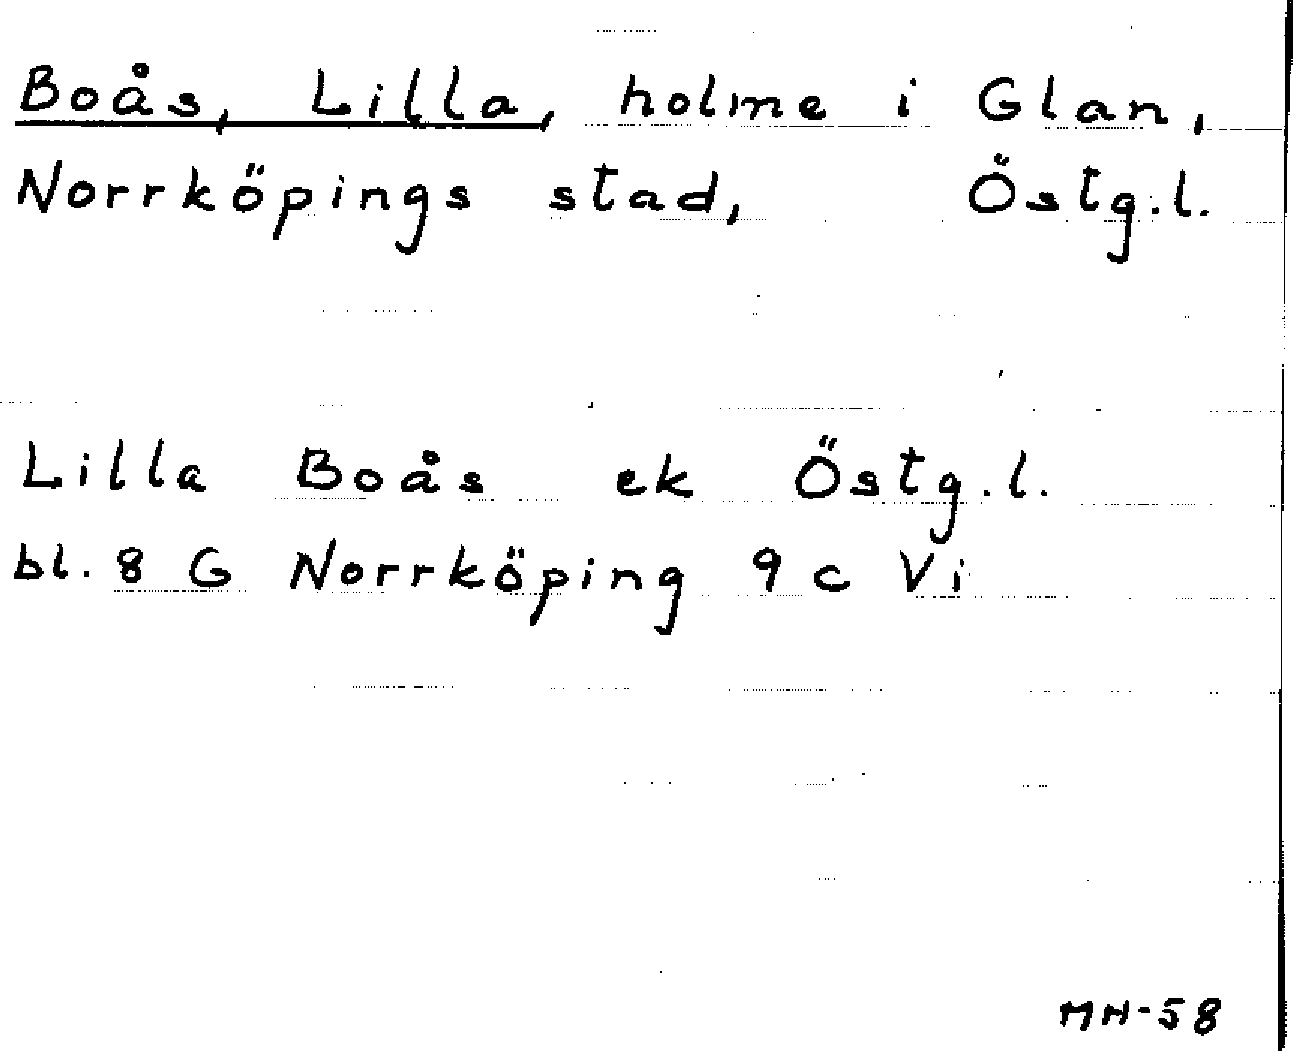 Boås, Lilla, holme i Glan,
Norrköpings stad, Östg.l.
Lilla Boås ek Östg.l.
bl. 8 G Norrköping 9 c Vi
MH-58